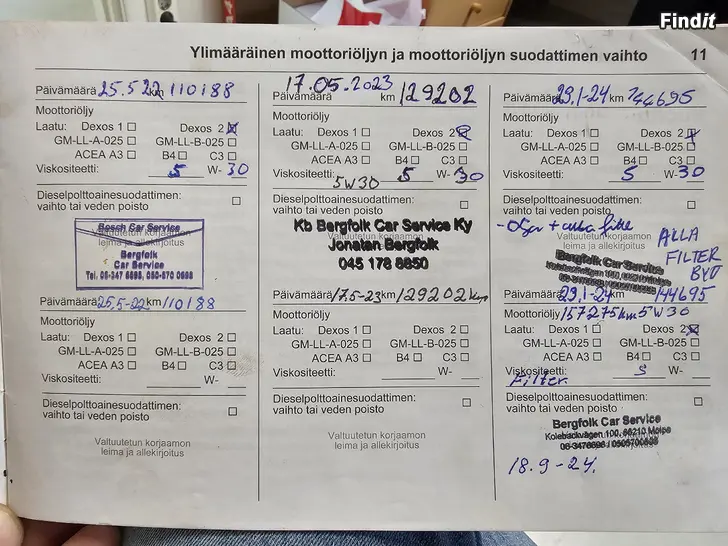 Findit
Ylimääräinen moottoriöljyn ja moottoriöljyn suodattimen vaihto 11
Päivämäärä 25.5 22 km 110188
Moottoriöljy
Laatu: Dexos 1 ☐ Dexos 2 ☒
GM-LL-A-025 ☐ GM-LL-B-025 ☐
ACEA A3 ☐ B4 ☐ C3 ☐
Viskositeetti: 5 W- 30
Dieselpolttoainesuodattimen: ☐
vaihto tai veden poisto
Valtuutetun korjaamon
leima ja allekirjoitus
Bosch Car Service
Bergfolk
Car Service
Tel. 06-347 6698, 050-570 0698
Päivämäärä 25,5-22 km/110188
Moottoriöljy
Laatu: Dexos 1 ☐ Dexos 2 ☐
GM-LL-A-025 ☐ GM-LL-B-025 ☐
ACEA A3 ☐ B4 ☐ C3 ☐
Viskositeetti: W-
Dieselpolttoainesuodattimen: ☐
vaihto tai veden poisto
Valtuutetun korjaamon
leima ja allekirjoitus
17.05.2023
Päivämäärä km 129202
Moottoriöljy
Laatu: Dexos 1 ☐ Dexos 2 ☒
GM-LL-A-025 ☐ GM-LL-B-025 ☐
ACEA A3 ☐ B4 ☐ C3 ☐
Viskositeetti: 5W30 5 W- 30
Dieselpolttoainesuodattimen: ☐
vaihto tai veden poisto
Kb Bergfolk Car Service Ky
Jonatan Bergfolk
045 178 8850
Päivämäärä 17.5-23 km/129202 km
Moottoriöljy
Laatu: Dexos 1 ☐ Dexos 2 ☐
GM-LL-A-025 ☐ GM-LL-B-025 ☐
ACEA A3 ☐ B4 ☐ C3 ☐
Viskositeetti: W-
Dieselpolttoainesuodattimen: ☐
vaihto tai veden poisto
Valtuutetun korjaamon
leima ja allekirjoitus
Päivämäärä 29.1-24 km 144695
Moottoriöljy
Laatu: Dexos 1 ☐ Dexos 2 ☒
GM-LL-A-025 ☐ GM-LL-B-025 ☐
ACEA A3 ☐ B4 ☐ C3 ☐
Viskositeetti: 5 W- 30
Dieselpolttoainesuodattimen: ☐
vaihto tai veden poisto
Valtuutetun korjaamon
leima ja allekirjoitus
ALLA
FILTER
BYD
Bergfolk Car Service
Päivämäärä 29.1-24 km 144695
Moottoriöljy 157275km 5W30
Laatu: Dexos 1 ☐ Dexos 2 ☒
GM-LL-A-025 ☐ GM-LL-B-025 ☐
ACEA A3 ☐ B4 ☐ C3 ☐
Viskositeetti: 5 W-
Filter
Dieselpolttoainesuodattimen: ☐
vaihto tai veden poisto
Bergfolk Car Service
Kolabackvägen 100, 66210 Molpe
18.9-24.